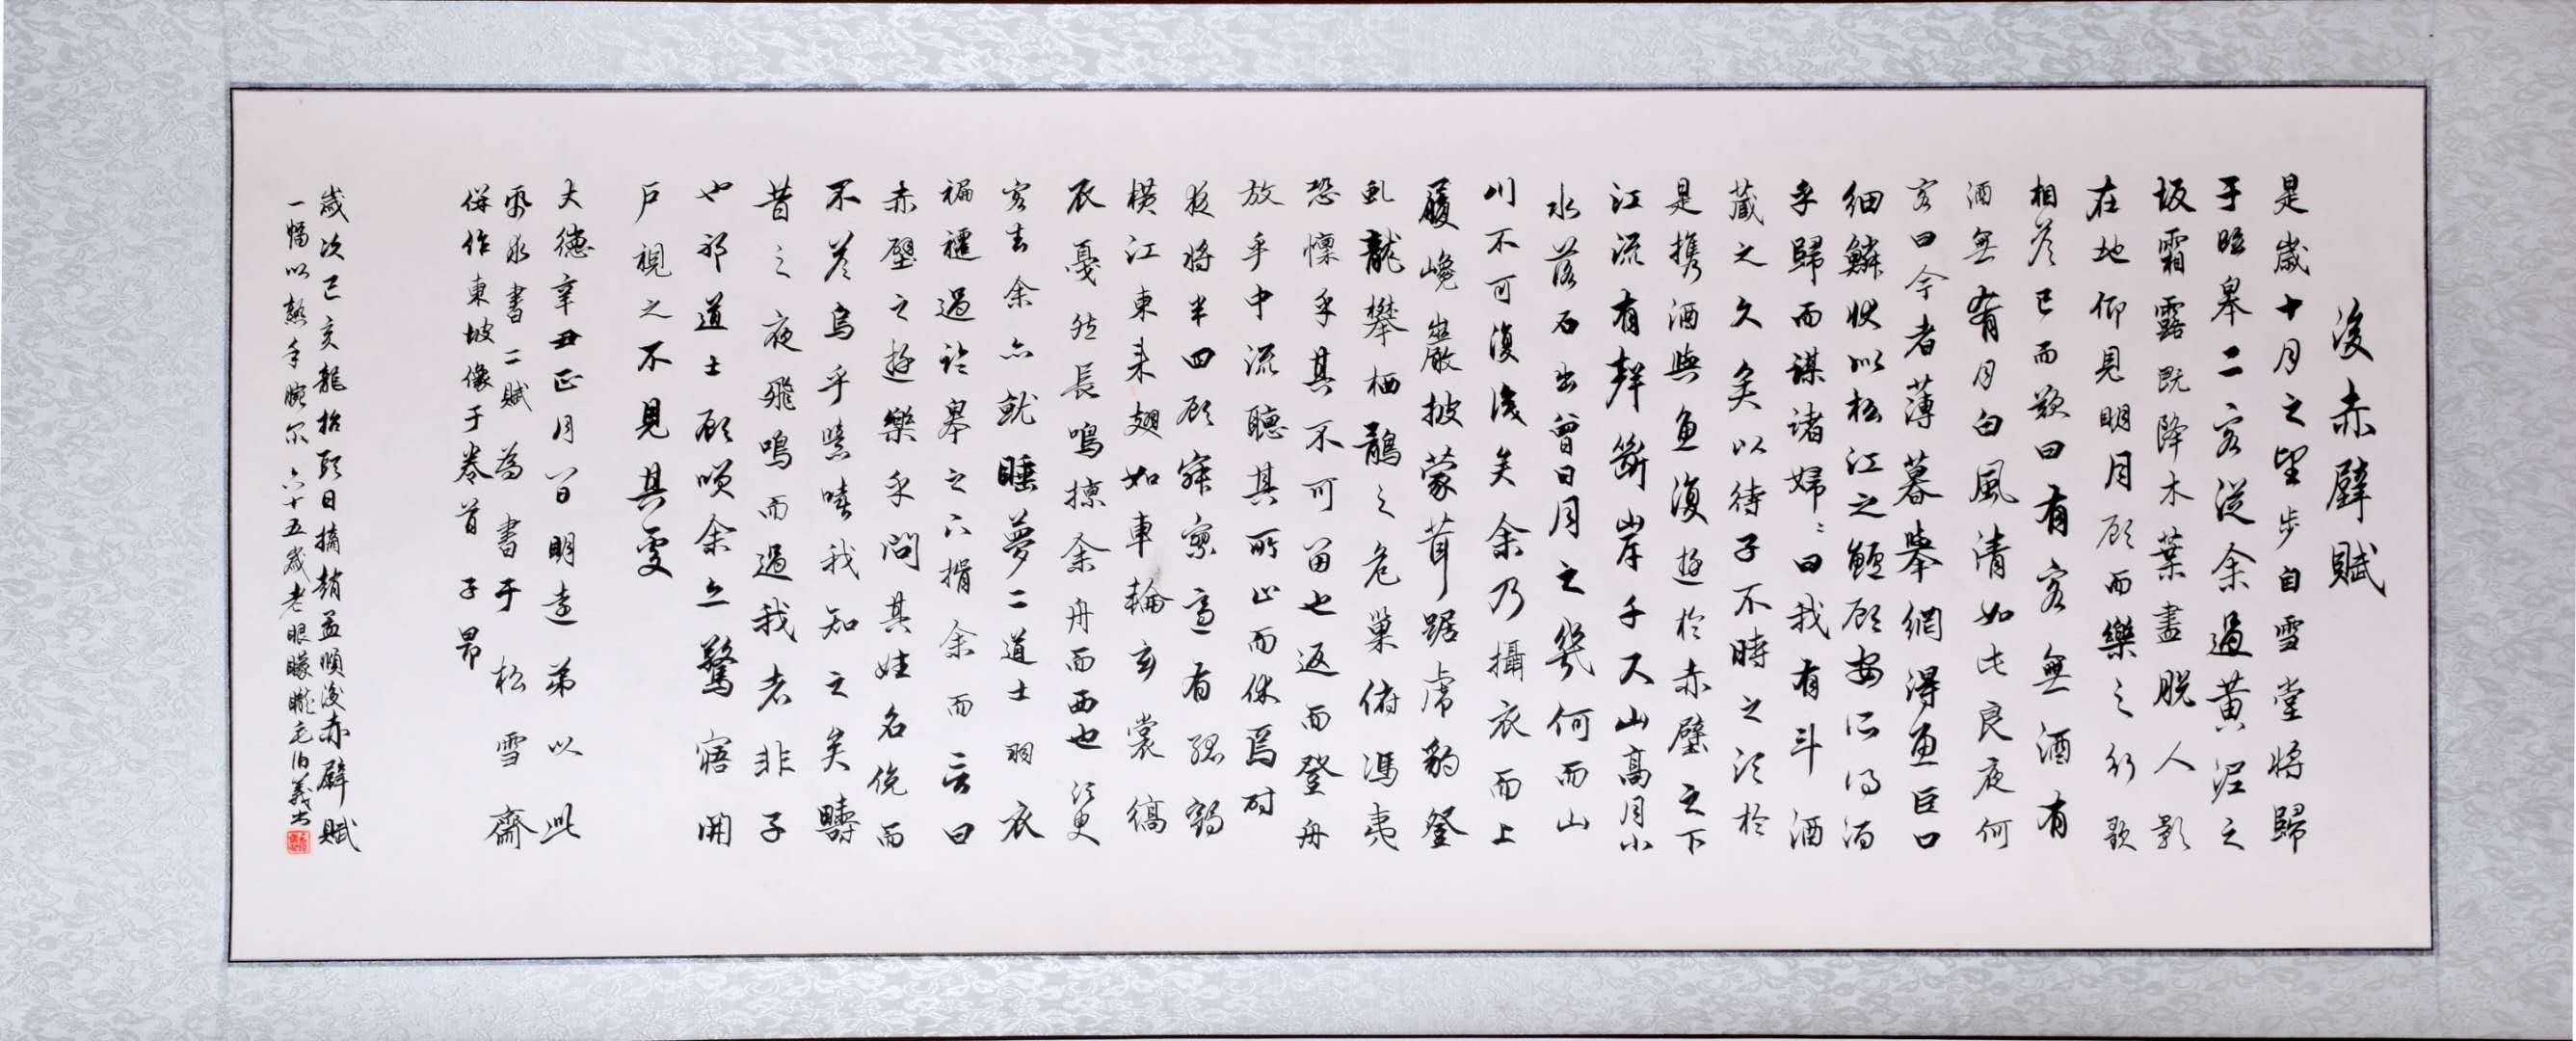 後赤壁賦
是歲十月之望步自雪堂將歸
于臨皋二客從余過黃泥之
坂霜露既降木葉盡脱人影
在地仰見明月顧而樂之行歌
相答已而歎曰有客無酒有
酒無肴月白風清如此良夜何
客曰今者薄暮舉網得魚巨口
細鱗狀似松江之鱸顧安所得酒
乎歸而謀諸婦〻曰我有斗酒
藏之久矣以待子不時之須於
是攜酒與魚復遊於赤壁之下
江流有聲斷岸千尺山高月小
水落石出曾日月之幾何而山
川不可復識矣余乃攝衣而上
履巉巖披蒙茸踞虎豹登
虬龍攀栖鶻之危巢俯馮夷
恐懍乎其不可留也返而登舟
放乎中流聽其所止而休焉時
夜將半四顧寂寥適有孤鶴
橫江東來翅如車輪玄裳縞
衣戛然長鳴掠余舟而西也須臾
客去余亦就睡夢二道士羽衣
褊褼過臨皋之下揖余而言曰
赤壁之遊樂乎問其姓名俛而
不答烏乎噫嘻我知之矣疇
昔之夜飛鳴而過我者非子
也邪道士顧唉余亦驚寤開
戶視之不見其處
大德辛丑正月八日明遠弟以此
帋求書二賦為書于松雪齋
併作東坡像于卷首 子昂
歲次己亥龍抬頭日摘趙孟頫後赤壁賦
一幅以熱手腕尔六十五歲老眼矇矓毛伯義書